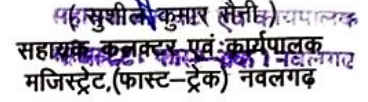 ( सुशील कुमार सैनी )
सहायक कलक्टर एवं कार्यपालक
मजिस्ट्रेट,(फास्ट–ट्रेक) नवलगढ़